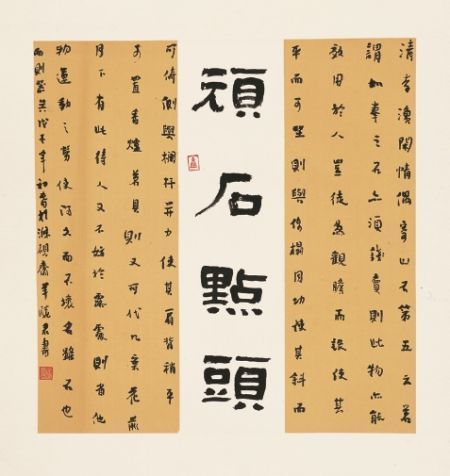 頑石點頭
清李漁閑情偶寄山石第五云若
謂如拳之石亦須錢買則此物亦能
效用於人豈徒為觀瞻而設使其
平而可坐則與椅榻同功使其斜而
可倚則與欄杆并力使其肩背稍平
可置香爐茗具則又可代几案花前
月下有此待人又不妨於露處則省他
物運動之勞使得久而不壞名雖石也
而則器矣戊子年初春於滌硯齋羊曉君書